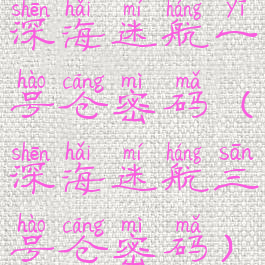 shēn hǎi mí háng yī
深海迷航一
hào cāng mì mǎ
号仓密码（
shēn hǎi mí háng sān
深海迷航三
hào cāng mì mǎ
号仓密码）